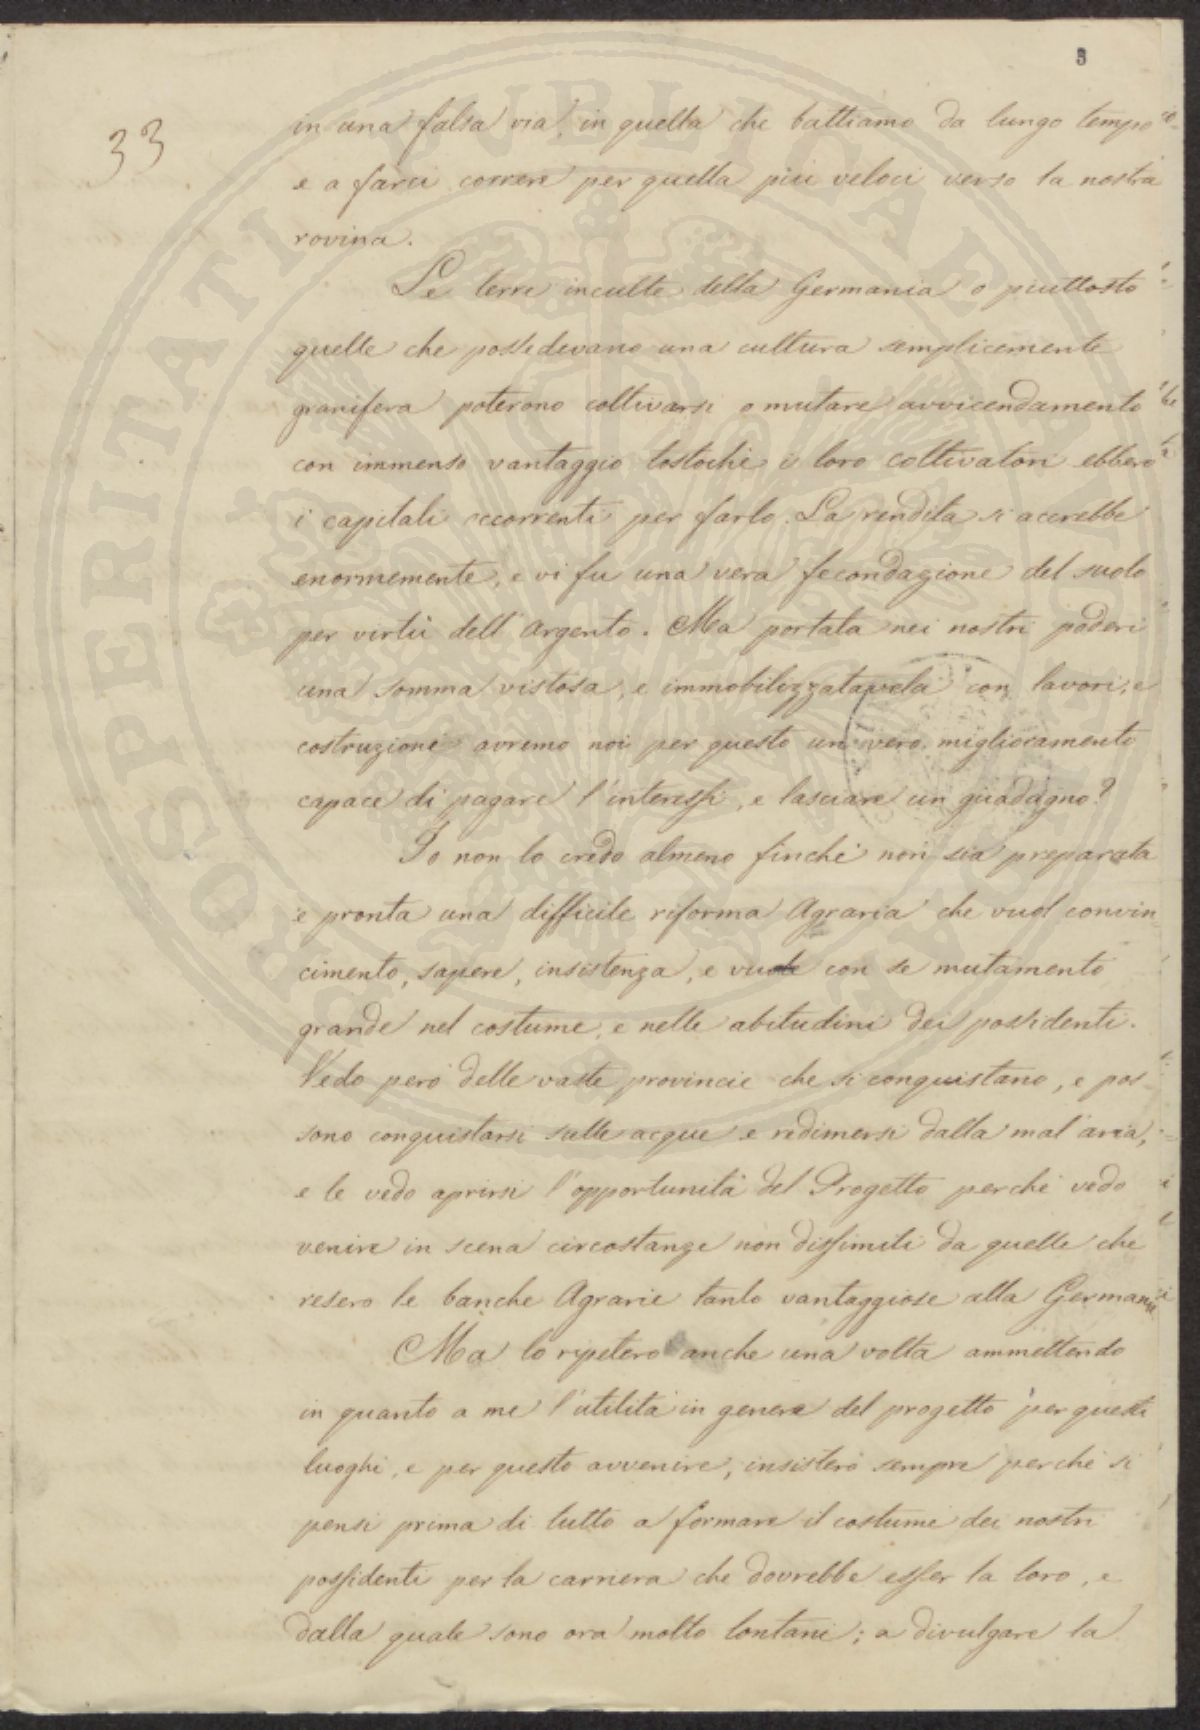 5
33
in una falsa via, in quella che battiamo da lungo tempo
e a farci correre per quella più veloci verso la nostra
rovina.
Le terre inculte della Germania o piuttosto
quelle che possedevano una cultura semplicemente
granifera poterono coltivarsi o mutare avvicendamento
con immenso vantaggio tostochè i loro coltivatori ebbero
i capitali occorrenti per farlo. La rendita si accrebbe
enormemente, e vi fu una vera fecondazione del suolo
per virtù dell'Argento. Ma portata nei nostri poderi
una somma vistosa, e immobilizzatavela con lavori, e
costruzioni avremo noi per questo un vero miglioramento
capace di pagare l'interessi, e lasciare un guadagno?
Io non lo credo almeno finchè non sia preparata
e pronta una difficile riforma Agraria che vuol convin
cimento, sapere, insistenza, e vuole con se mutamento
grande nel costume, e nelle abitudini dei possidenti.
Vedo però delle vaste provincie che si conquistano, e pos-
sono conquistarsi sulle acque e redimersi dalla mal'aria,
e le vedo aprirsi l'opportunità del Progetto perchè vedo
venire in scena circostanze non dissimili da quelle che
resero le banche Agrarie tanto vantaggiose alla Germania
Ma lo ripeterò anche una volta ammettendo
in quanto a me l'utilità in genere del progetto per questi
luoghi, e per questo avvenire, insisterò sempre perchè si
pensi prima di tutto a formare il costume dei nostri
possidenti per la carriera che dovrebbe esser la loro, e
dalla quale sono ora molto lontani; a divulgare la
PROSPERITATI PUBLICAE AUGENDAE